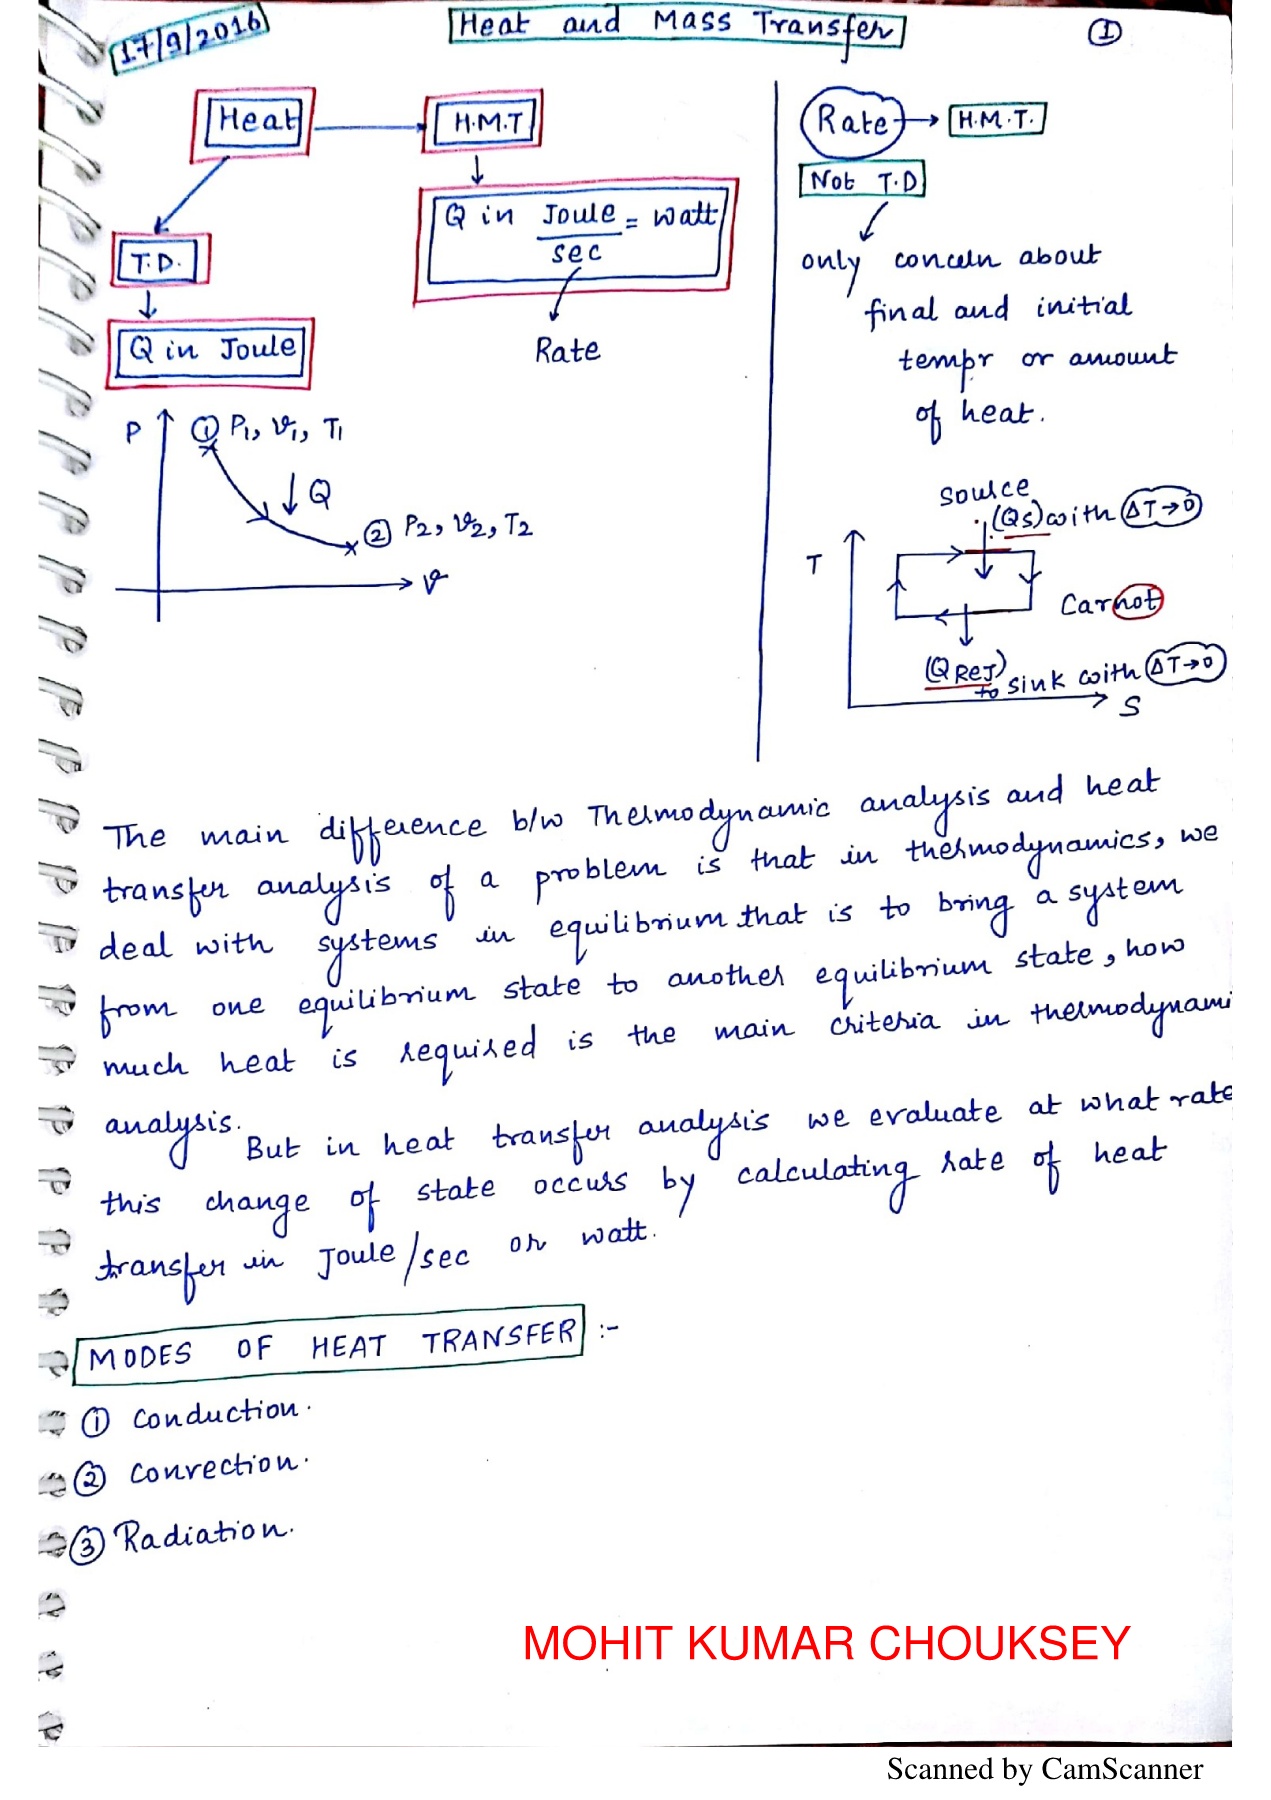 17/9/2016
Heat and Mass Transfer
1
Heat
H.M.T
T.D.
Q in Joule
Q in Joule/sec = watt
Rate
P
① P1, v1, T1
↓ Q
② P2, v2, T2
v
Rate → H.M.T.
Not T.D
only concern about
final and initial
tempr or amount
of heat.
source
(Qs) with ΔT→0
T
Carnot
(QRej)
to sink with ΔT→0
S
The main difference b/w Thermodynamic analysis and heat
transfer analysis of a problem is that in thermodynamics, we
deal with systems in equilibrium that is to bring a system
from one equilibrium state to another equilibrium state, how
much heat is required is the main criteria in thermodynami
analysis.
But in heat transfer analysis we evaluate at what rate
this change of state occurs by calculating rate of heat
transfer in Joule/sec or watt.
MODES OF HEAT TRANSFER :-
① Conduction.
② Convection.
③ Radiation.
MOHIT KUMAR CHOUKSEY
Scanned by CamScanner